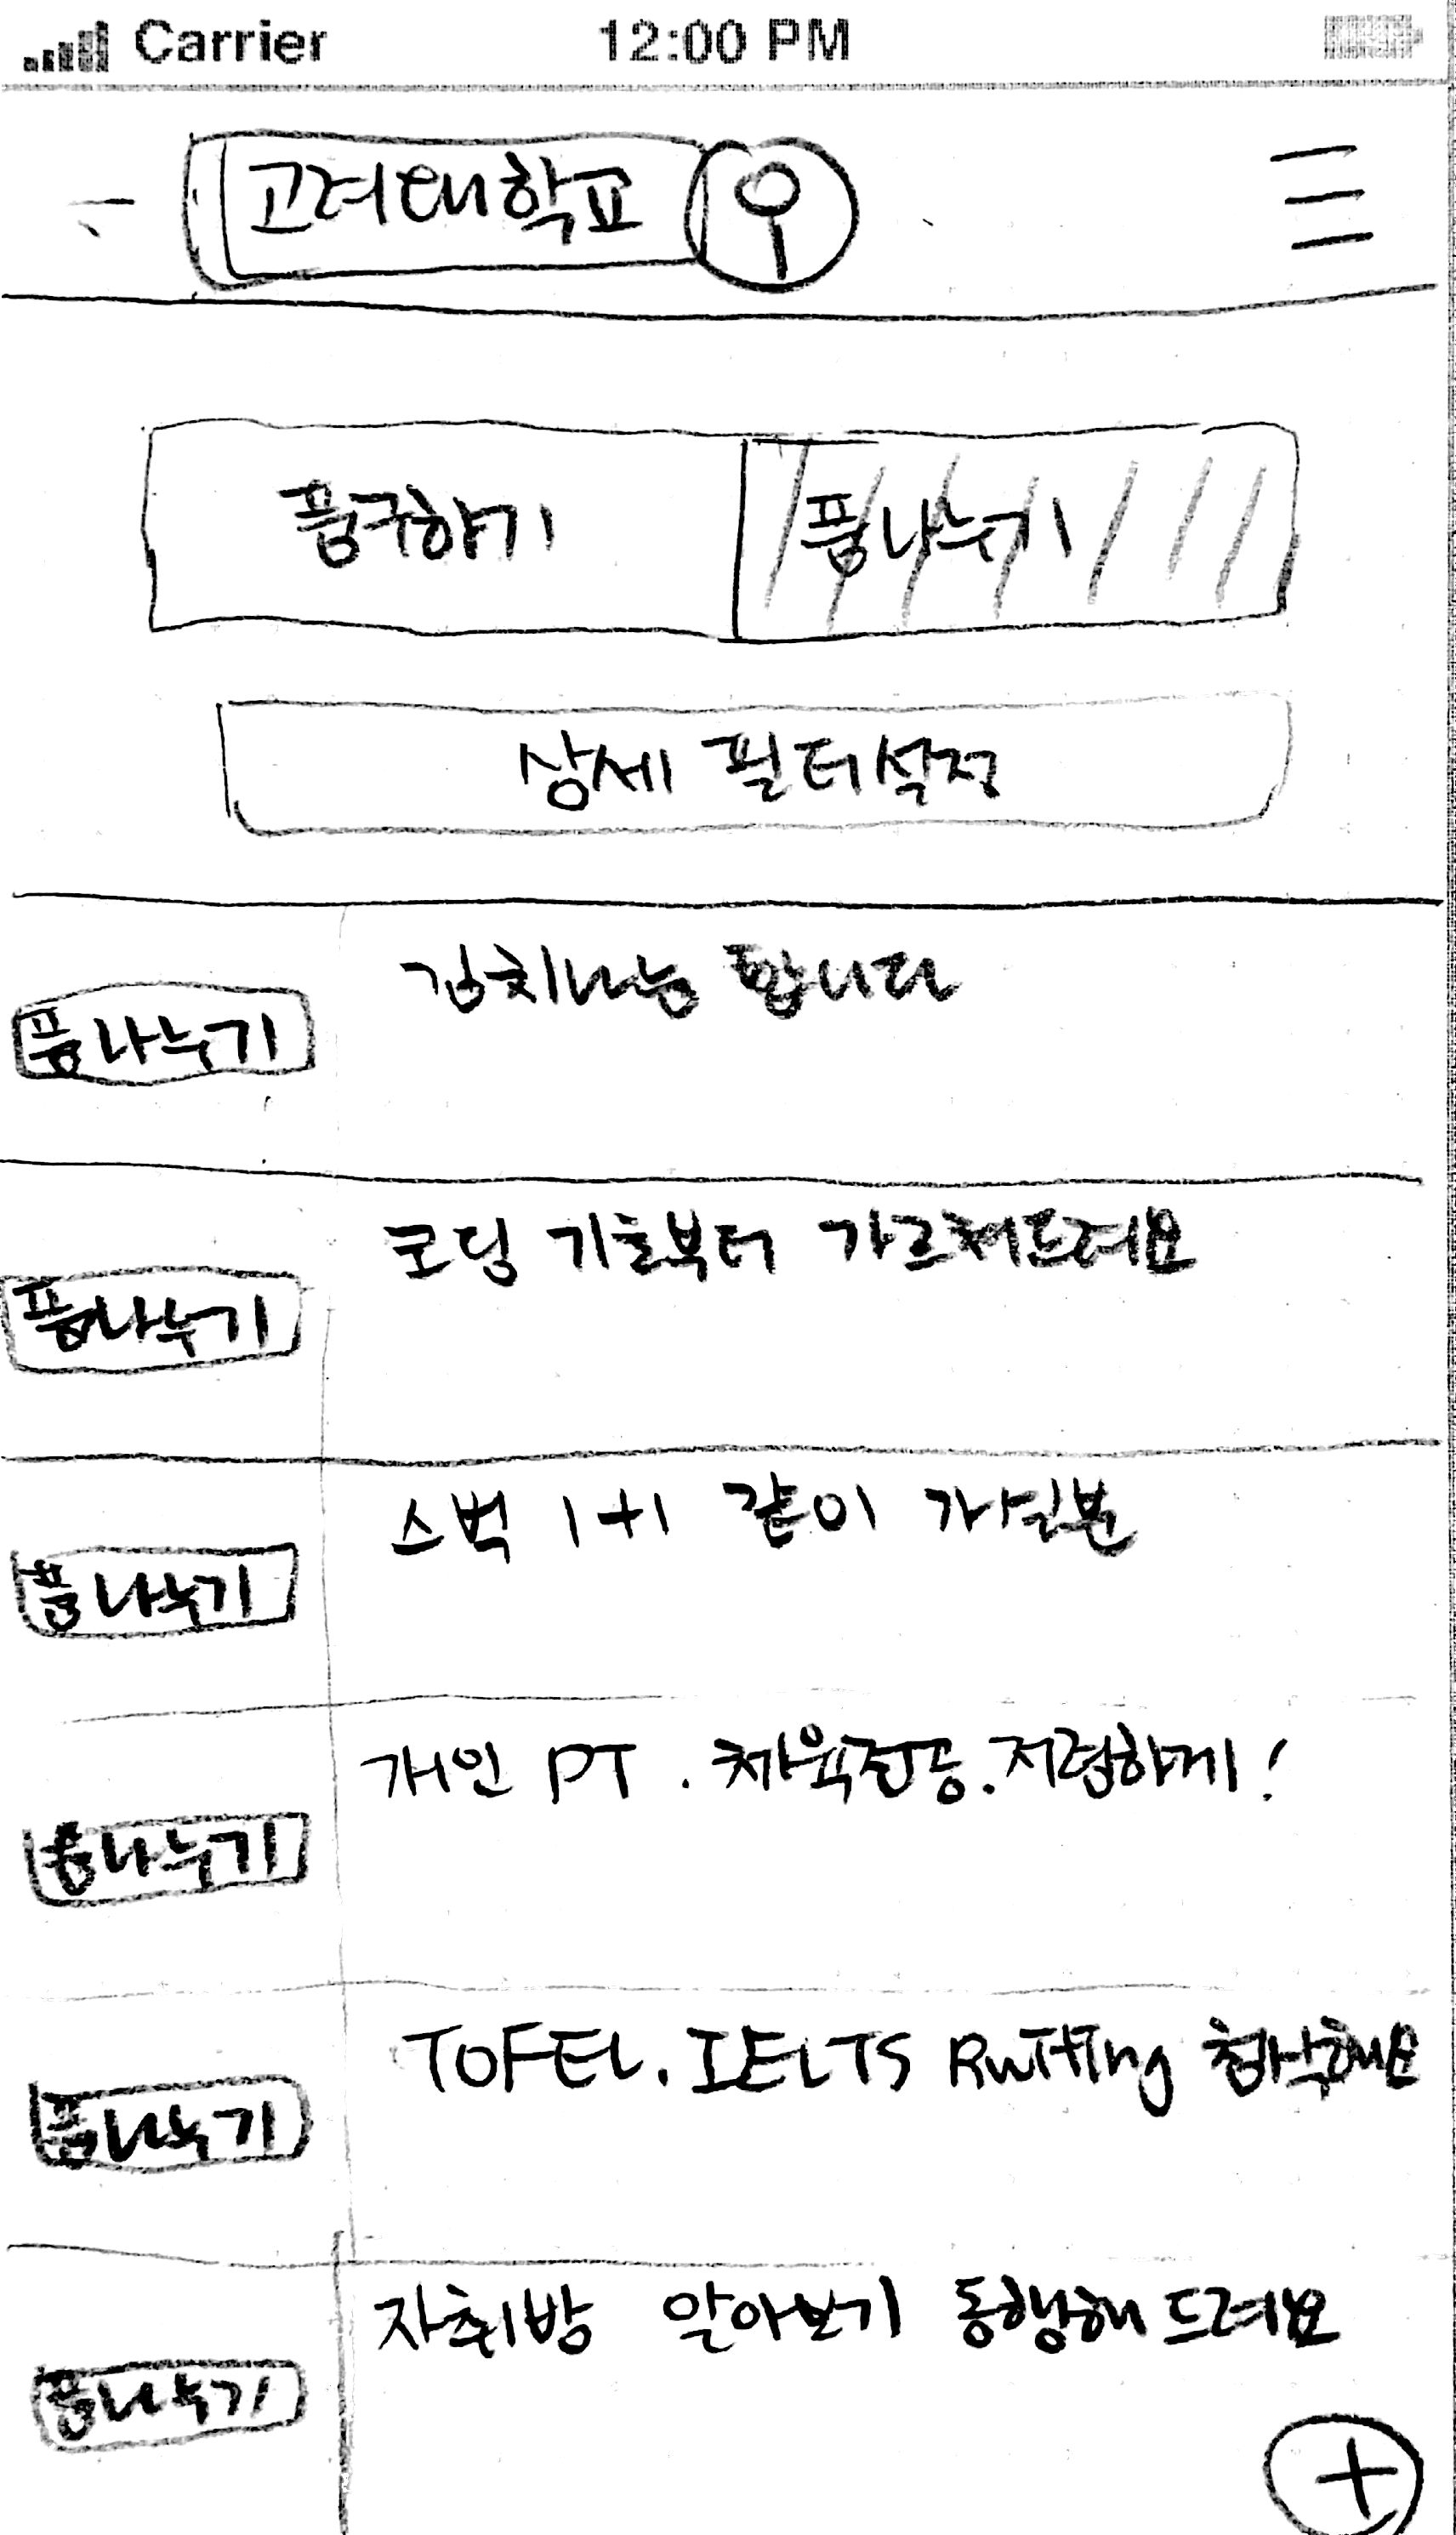 Carrier 12:00 PM
고려대학교
품구하기 품나누기
상세 필터설정
김치나눔 합니다
품나누기
코딩 기초부터 가르쳐드려요
품나누기
스벅 1+1 같이 가실분
품나누기
개인 PT . 체육전공. 저렴하게!
품나누기
TOFEL. IELTS 첨삭해요
품나누기
자취방 알아보기 동행해 드려요
품나누기
+